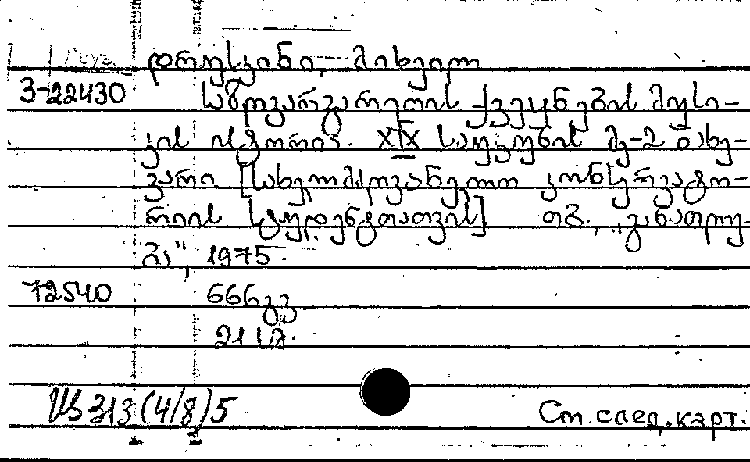 დრუსკინი, მიხეილ
3-22430 საზღვარგარეთის ქვეყნების მუსი-
კის ისტორია. XIX საუკუნის მე-2 ნახე-
ვარი [სახელმძღვანელო კონსერვატო-
რიის სტუდენტთათვის] თბ., „განათლე-
ბა“, 1975.
72540 666გვ
21 სმ.
VS 313 (4/8) 5 См. след. карт.